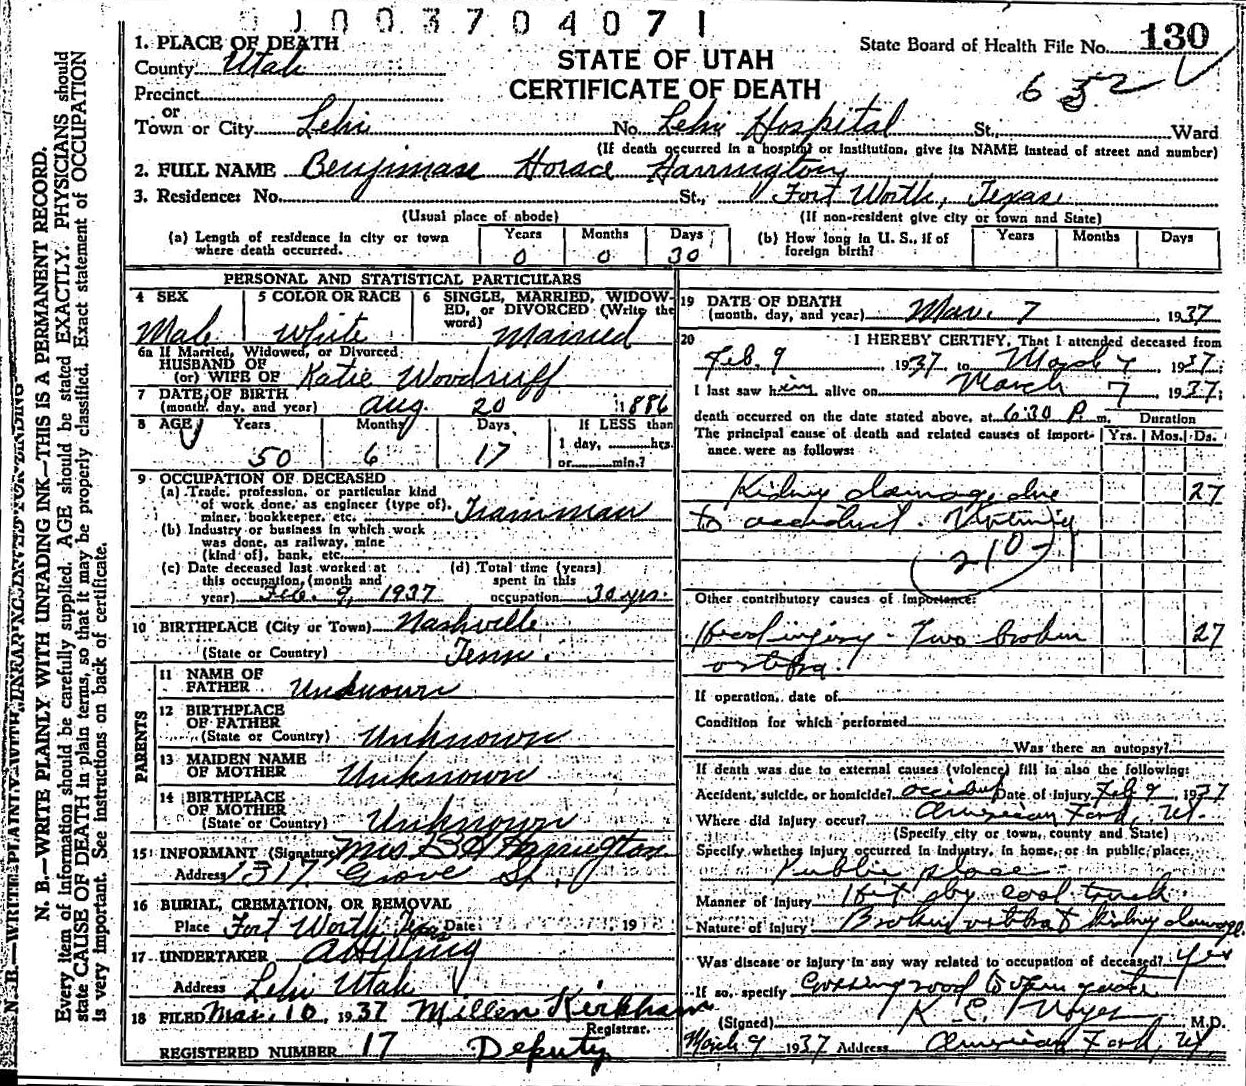 J003704071
1. PLACE OF DEATH
STATE OF UTAH
CERTIFICATE OF DEATH
State Board of Health File No. 130
County Utah
652
Precinct
or
Town or City Lehi No. Lehi Hospital St., Ward
(If death occurred in a hospital or institution, give its NAME instead of street and number)
2. FULL NAME Benjimase Horace Harrington
3. Residence: No. St., Fort Worth, Texas
(Usual place of abode) (If non-resident give city or town and State)
(a) Length of residence in city or town where death occurred. Years 0 Months 0 Days 30
(b) How long in U. S., if of foreign birth? Years Months Days
PERSONAL AND STATISTICAL PARTICULARS
4 SEX Male
5 COLOR OR RACE White
6 SINGLE, MARRIED, WIDOWED, or DIVORCED (Write the word) Married
6a If Married, Widowed, or Divorced
HUSBAND OF
(or) WIFE OF Katie Woodruff
7 DATE OF BIRTH
(month, day, and year) Aug. 20 1886
8 AGE Years 50 Months 6 Days 17 If LESS than 1 day, hrs. or min.?
9 OCCUPATION OF DECEASED
(a) Trade, profession, or particular kind
of work done, as engineer (type of),
miner, bookkeeper, etc. Trainman
(b) Industry or business in which work
was done, as railway, mine
(kind of), bank, etc.
(c) Date deceased last worked at
this occupation, (month and
year) Feb. 9, 1937
(d) Total time (years)
spent in this
occupation 30 yrs.
10 BIRTHPLACE (City or Town) Nashville
(State or Country) Tenn.
PARENTS
11 NAME OF
FATHER Unknown
12 BIRTHPLACE
OF FATHER
(State or Country) Unknown
13 MAIDEN NAME
OF MOTHER Unknown
14 BIRTHPLACE
OF MOTHER
(State or Country) Unknown
15 INFORMANT (Signature) Mrs B H Harrington
Address 1317 Grove St.
16 BURIAL, CREMATION, OR REMOVAL
Place Fort Worth, Texas Date 19
17 UNDERTAKER
Address Lehi Utah
18 FILED Mar. 10, 1937 Millen Kirkham
Registrar.
REGISTERED NUMBER 17 Deputy
19 DATE OF DEATH
(month, day, and year) Mar. 7 1937
20 I HEREBY CERTIFY, That I attended deceased from
Feb. 9 1937 to March 7 1937
I last saw him alive on March 7 1937;
death occurred on the date stated above, at 6:30 P. m.
Duration
The principal cause of death and related causes of importance were as follows:
Yrs. Mos. Ds.
Kidney damage due 27
to accident.
210-
Other contributory causes of importance:
Head injury - Two broken 27
If operation, date of
Condition for which performed
Was there an autopsy?
If death was due to external causes (violence) fill in also the following:
Accident, suicide, or homicide? accident Date of injury Feb 9 1937
Where did injury occur? American Fork, Ut.
(Specify city or town, county and State)
Specify whether injury occurred in industry, in home, or in public place:
Public place
Manner of Injury Hit by coal truck
Nature of Injury Broken kidney damage.
Was disease or injury in any way related to occupation of deceased? Yes
If so, specify Crossing road
(Signed) K. E. Noyes M.D.
March 9 1937 Address American Fork, Ut.
N. B.—WRITE PLAINLY WITH UNFADING INK—THIS IS A PERMANENT RECORD.
Every item of information should be carefully supplied. AGE should be stated EXACTLY. PHYSICIANS should
state CAUSE OF DEATH in plain terms, so that it may be properly classified. Exact statement of OCCUPATION
is very important. See instructions on back of certificate.